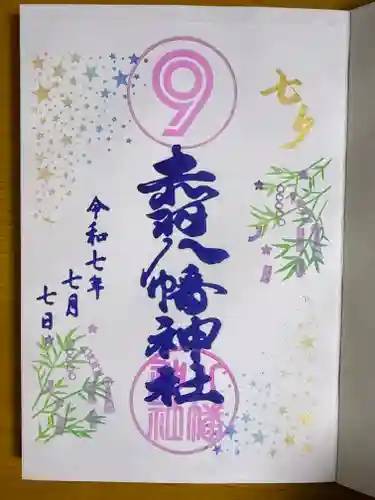 七夕
9
赤羽八幡神社
令和七年
七月
七日